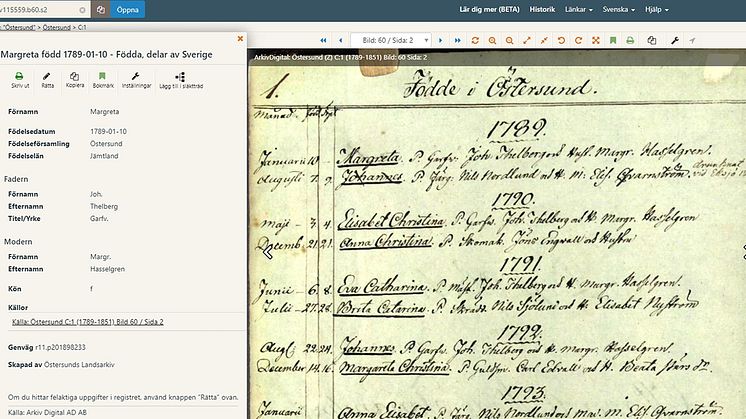 v115559.b60.s2
Öppna
Lär dig mer (BETA) Historik Länkar Svenska Hjälp
"Östersund" > Östersund > C:1
Bild: 60 / Sida: 2
Margreta född 1789-01-10 - Födda, delar av Sverige
Skriv ut Rätta Kopiera Bokmärk Inställningar Lägg till i släktträd
Förnamn Margreta
Födelsedatum 1789-01-10
Födelseförsamling Östersund
Födelselän Jämtland
Fadern
Förnamn Joh.
Efternamn Thelberg
Titel/Yrke Garfv.
Modern
Förnamn Margr.
Efternamn Hasselgren
Kön f
Källor
Källa: Östersund C:1 (1789-1851) Bild 60 / Sida 2
Genväg r11.p201898233
Skapad av Östersunds Landsarkiv
Om du hittar felaktiga uppgifter i registret, använd knappen "Rätta" ovan.
Källa: Arkiv Digital AD AB
ArkivDigital: Östersund (Z) C:1 (1789-1851) Bild: 60 Sida: 2
1. Födde i Östersund.
Månad
1789.
Januarii 10 Margreta. P. Garfv. Joh. Thelberg och Hust. Margr. Hasselgren.
Augusti 7. 9. Johannes. P. Färg. Nils Nordlund och H. M: Elis. Qvarnström
1790.
Maji 3. 4. Elisabet Christina. P. Garfv. Joh. Thelberg och H. Margr. Hasselgren
Decemb. 21. 21. Anna Christina. P. Skomak. Jöns Engwall och Hustru
1791.
Junii 6. 8. Eva Catharina. P. Joh. Thelberg och H. Margr. Hasselgren.
Julii 27. 28. Brita Catarina. P. Nils Sjölund och H. Elisabet Nyström
1792.
Aug. 22. 24. Johannes. P. Garfv. Joh. Thelberg och H. Margr. Hasselgren.
December 14. 16. Margareta Christina. P. Guldsm. Carl Edvall och H. Beata
1793.
Januarii Anna Elisabet. P. Färg. Nils Nordlund och Mar. M. Elis. Qvarnström.